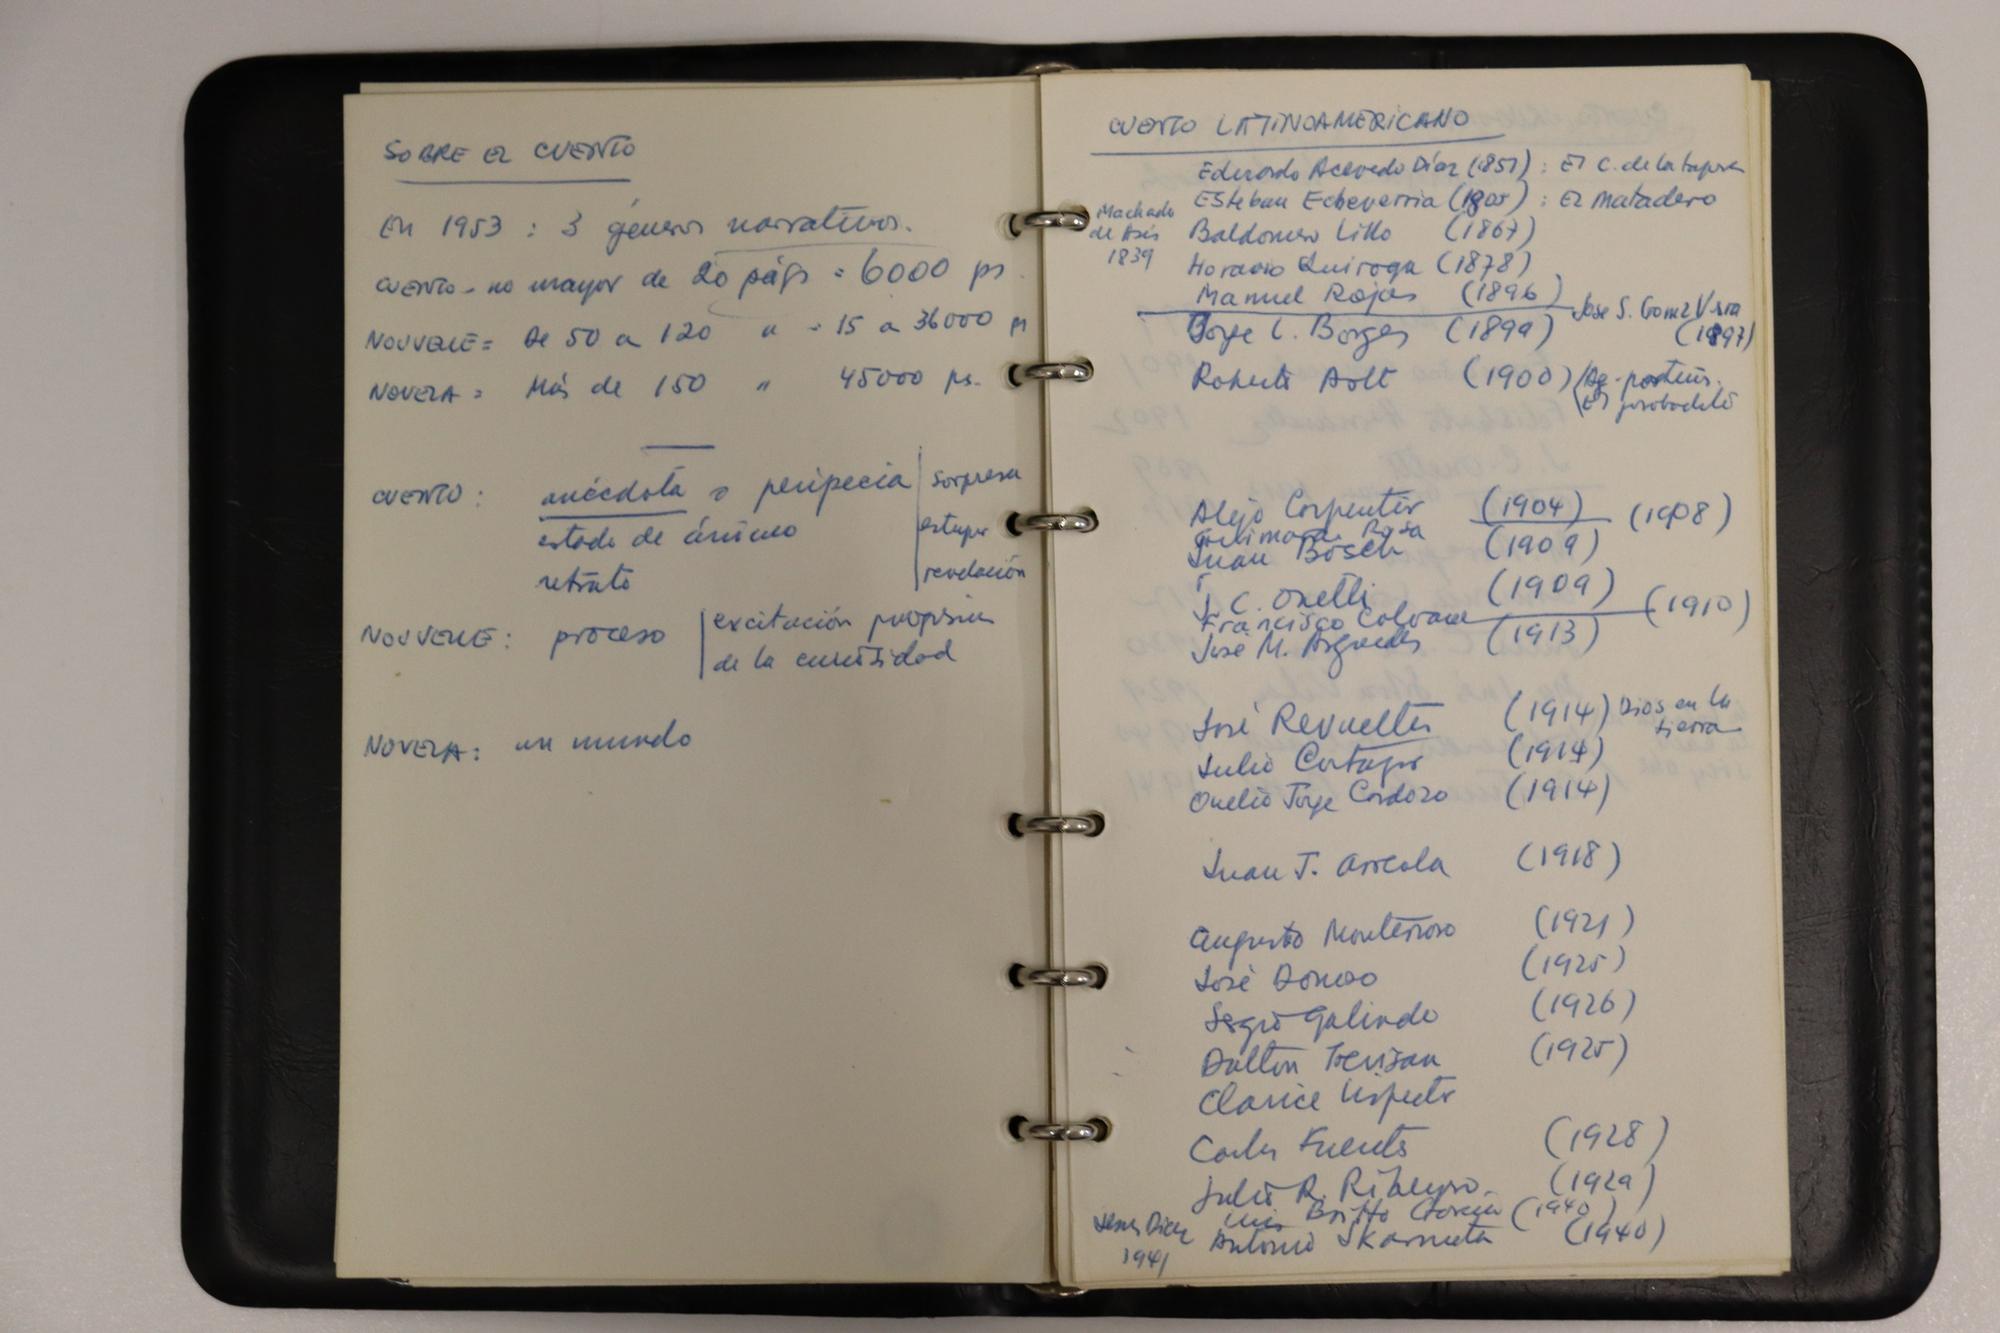 SOBRE EL CUENTO
En 1953 : 3 géneros narrativos.
CUENTO - no mayor de 20 págs = 6000 ps.
NOUVELLE = De 50 a 120 " = 15 a 36000 ps
NOVELA = Más de 150 " 45000 ps.
CUENTO : anécdota o peripecia | sorpresa
estado de ánimo estupor
retrato revelación
NOUVELLE : proceso | excitación
de la curiosidad
NOVELA : un mundo
CUENTO LATINOAMERICANO
Eduardo Acevedo Díaz (1851) : El C. de la
Esteban Echeverria (1805) : El Matadero
Machado de Asís 1839
Baldomero Lillo (1867)
Horacio Quiroga (1878)
Manuel Rojas (1896)
José S. Gomz Vera (1897)
Jorge L. Borges (1899)
Roberto Arlt (1900) El jorobadito
Alejo Carpentier (1904)
Guimaraes Rosa (1908)
Juan Bosch (1909)
J. C. Onetti (1909)
Francisco Coloane (1910)
José M. Arguedas (1913)
José Revueltas (1914) Dios en la tierra
Julio Cortazar (1914)
Onelio Jorge Cardozo (1914)
Juan J. Arreola (1918)
Augusto Monterroso (1921)
José Donoso (1925)
Sergio Galindo (1926)
Dalton Trevisan (1925)
Clarice Lispector
Carlos Fuentes (1928)
Julio R. Ribeyro (1929)
Luis Britto García (1940)
Jesus Diaz 1941
Antonio Skarmeta (1940)